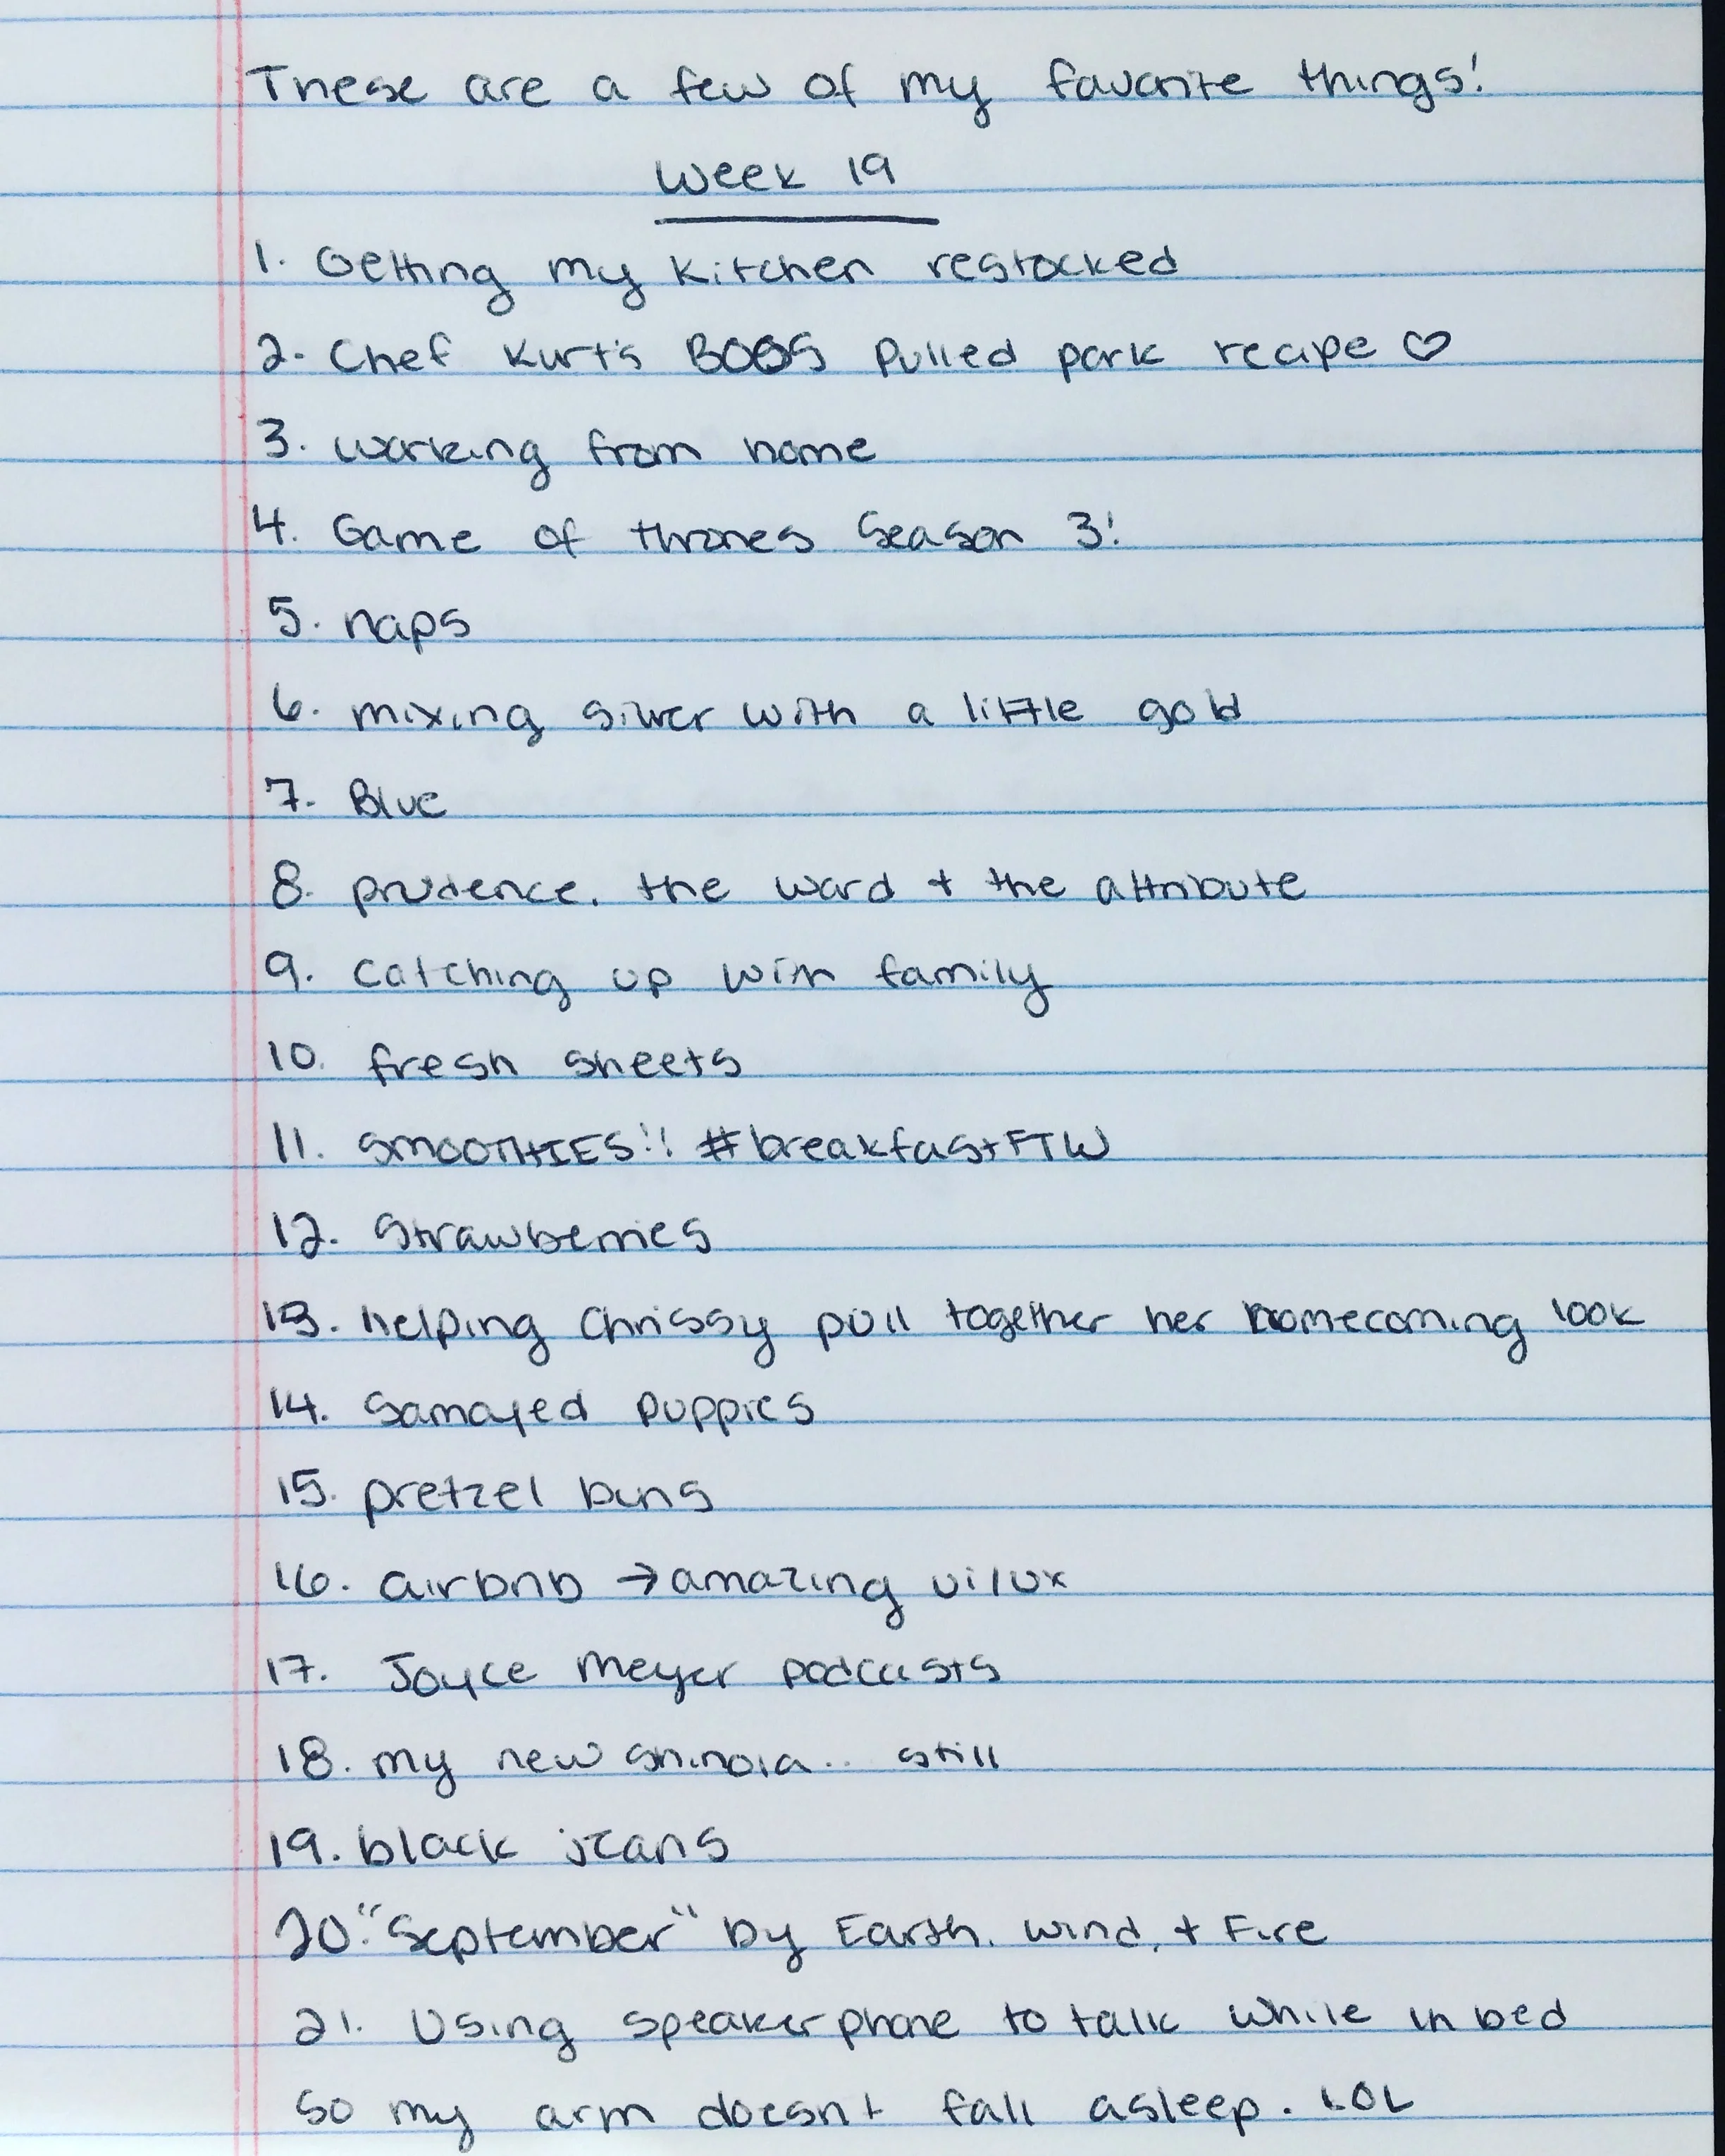 These are a few of my favorite things!
Week 19
1. Getting my kitchen restocked
2. Chef Kurt's BOSS pulled pork recipe ♡
3. working from home
4. Game of thrones Season 3!
5. naps
6. mixing silver with a little gold
7. Blue
8. prudence. the word + the attribute
9. catching up with family
10. fresh sheets
11. SMOOTHIES!! #breakfastFTW
12. Strawberries
13. helping Chrissy pull together her homecoming look
14. Samoyed puppies
15. pretzel buns
16. airbnb → amazing ui/ux
17. Joyce Meyer podcasts
18. my new shinola... still
19. black jeans
20. "September" by Earth, wind, + Fire
21. Using speakerphone to talk while in bed
so my arm doesn't fall asleep. LOL